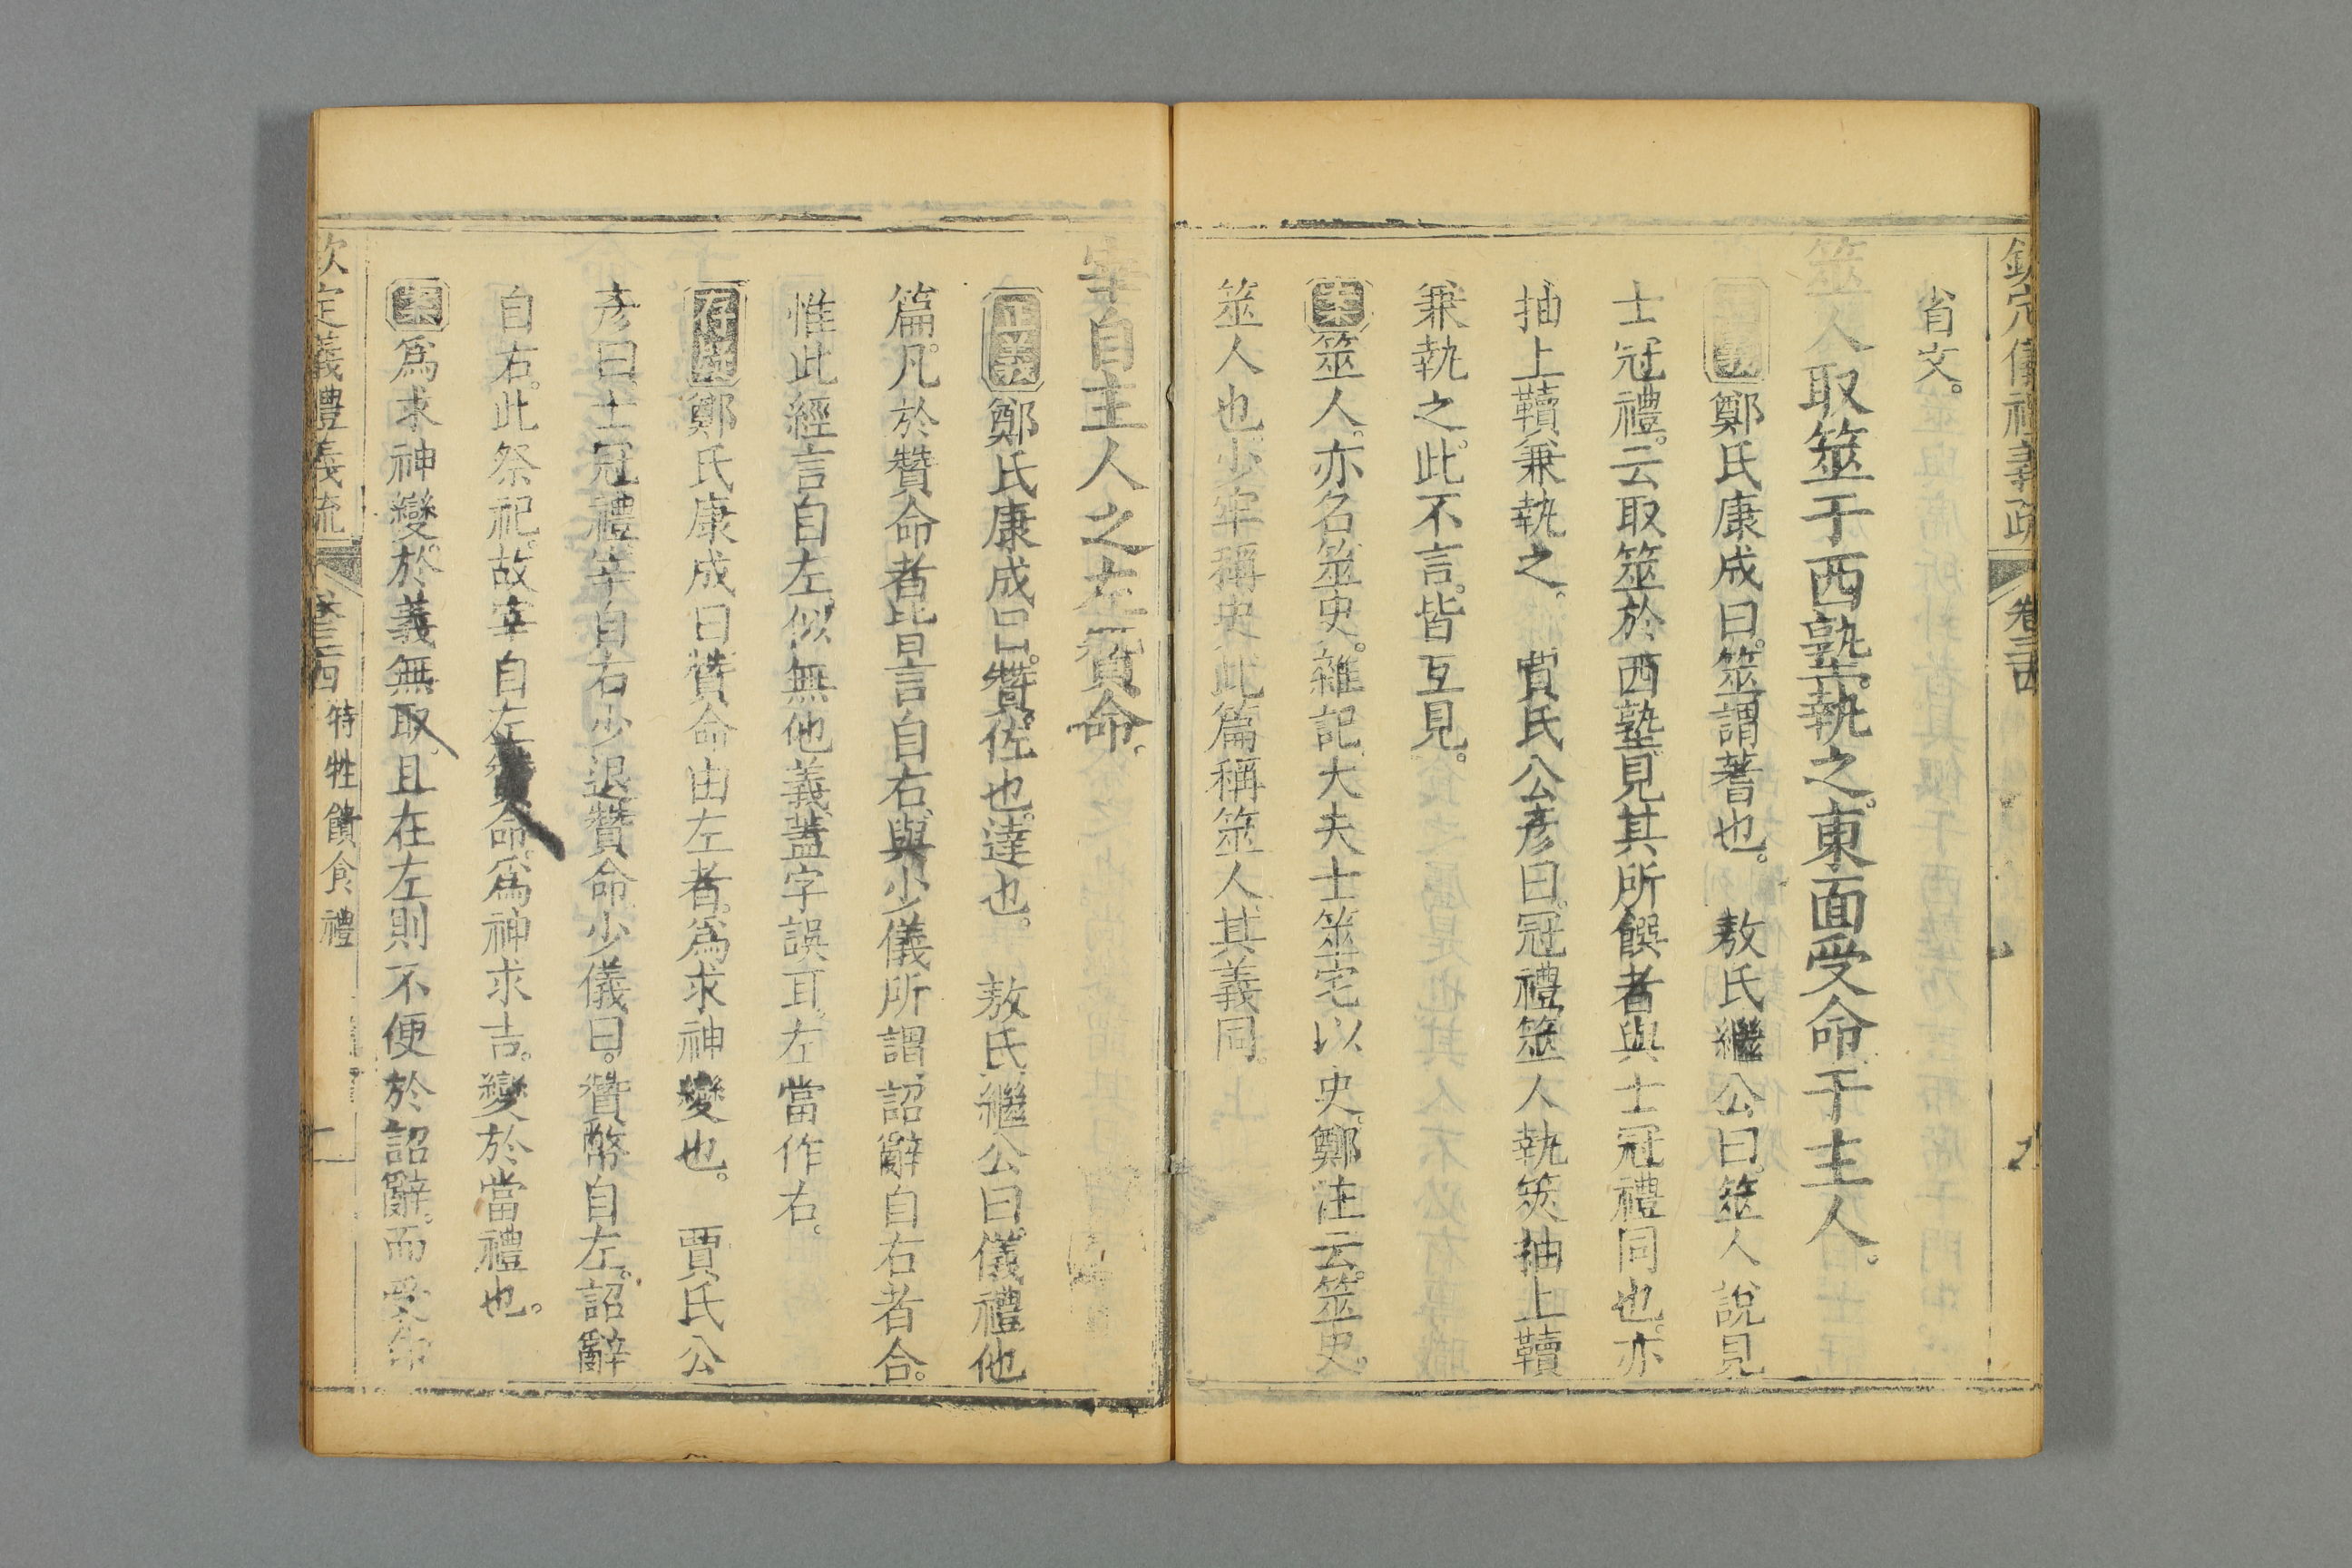 欽定儀禮義疏 卷三四
省文。
筮人取筮于西塾。執之。東面受命于主人。
正義鄭氏康成曰。筮謂蓍也。 敖氏繼公曰。筮人說見
士冠禮。云取筮於西塾。見其所饌者與士冠禮同也。亦
抽上韇兼執之。 賈氏公彥曰。冠禮筮人執筴抽上韇
兼執之。此不言。皆互見。
案筮人。亦名筮史。雜記大夫士筮宅以史。鄭注云。筮史。
筮人也。少牢稱史。此篇稱筮人。其義同。
宰自主人之左贊命。
正義鄭氏康成曰。贊。佐也。達也。 敖氏繼公曰。儀禮他
篇。凡於贊命者皆言自右。與少儀所謂詔辭自右者合。
惟此經言自左。似無他義。蓋字誤耳。左當作右。
存疑鄭氏康成曰。贊命由左者。爲求神變也。 賈氏公
彥曰。士冠禮。宰自右少退贊命。少儀曰。贊幣自左。詔辭
自右。此祭祀。故宰自左贊命。爲神求吉。變於當禮也。
案爲求神變。於義無取。且在左則不便於詔辭。而受命
欽定義禮義疏 卷三四 特牲饋食禮